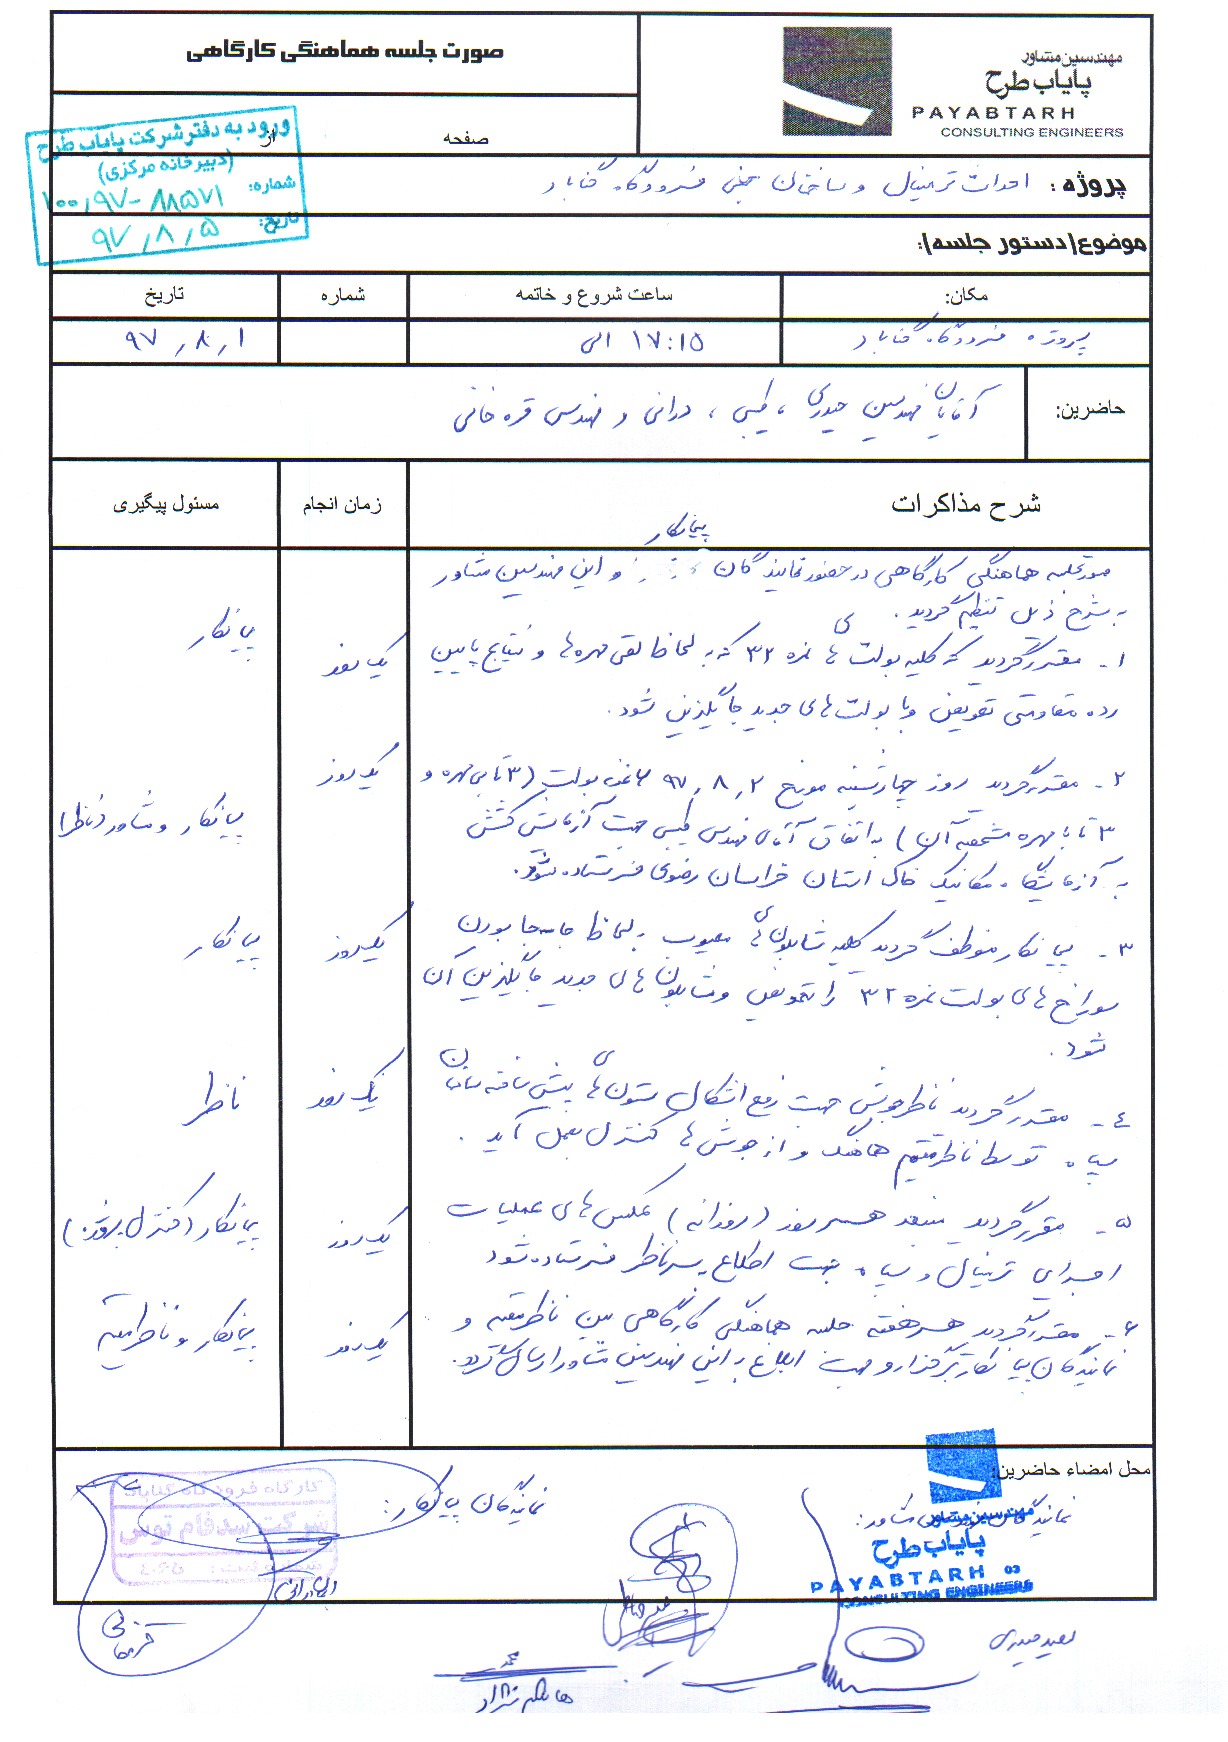 صورت جلسه هماهنگی کارگاهی
مهندسین مشاور
پایاب طرح
PAYABTARH
CONSULTING ENGINEERS
صفحه از
ورود به دفتر شرکت پایاب طرح
(دبیرخانه مرکزی)
شماره: ۱۰۰٫۹۷-۸۸۵۷۱
تاریخ: ۹۷٫۸٫۵
پروژه: احداث ترمینال و ساختمان جنبی فرودگاه گناباد
موضوع/دستور جلسه:
مکان: ساعت شروع و خاتمه شماره تاریخ
پروژه فرودگاه گناباد ۱۷:۱۵ الی ۹۷٫۸٫۱
حاضرین: آقایان مهندسین حیدری، طبسی، درانی و مهندس قره خانی
شرح مذاکرات زمان انجام مسئول پیگیری
پیمانکار
صورتجلسه هماهنگی کارگاهی در حضور نمایندگان و این مهندسین مشاور
به شرح ذیل تنظیم گردید.
۱- مقرر گردید که کلیه بولت های نمره ۳۲ که به لحاظ لقی مهره‌ها و نتایج پایین یک روز پیمانکار
رده مقاومتی تعویض و با بولت‌های جدید جایگزین شود.
۲- مقرر گردید روز چهارشنبه مورخ ۹۷٫۸٫۲ ۶ عدد بولت (۳ تا بی مهره و یک روز
۳ تا با مهره مشخصه آن) به اتفاق آقای مهندس طبسی جهت آزمایش کشش پیمانکار و مشاور (ناظر)
به آزمایشگاه مکانیک خاک استان خراسان رضوی فرستاده شود.
۳- پیمانکار موظف گردید کلیه شابلون های معیوب به لحاظ جابه‌جا بودن یک روز پیمانکار
سوراخ های بولت نمره ۳۲ را تعویض و شابلون های جدید جایگزین آن
شود.
۴- مقرر گردید ناظر جوش جهت رفع اشکال ستون های پیش ساخته ساختمان یک روز ناظر
سپاه توسط ناظر مقیم هماهنگ و از جوش ها کنترل بعمل آید.
۵- مقرر گردید منبعد هر روز (روزانه) عکس های عملیات یک روز پیمانکار (کنترل پروژه)
اجرایی ترمینال و سپاه جهت اطلاع به سرناظر فرستاده شود
۶- مقرر گردید هر هفته جلسه هماهنگی کارگاهی بین ناظر مقیم و یک روز پیمانکار و ناظر مقیم
نمایندگان پیمانکار برگزار و جهت ابلاغ به این مهندسین مشاور ارسال گردد.
محل امضاء حاضرین:
نمایندگان مشاور:
نمایندگان پیمانکار:
مهندسین مشاور
پایاب طرح
PAYABTARH 03
CONSULTING ENGINEERS
کارگاه فرودگاه گناباد
شرکت سدفام توس
سعید حیدری